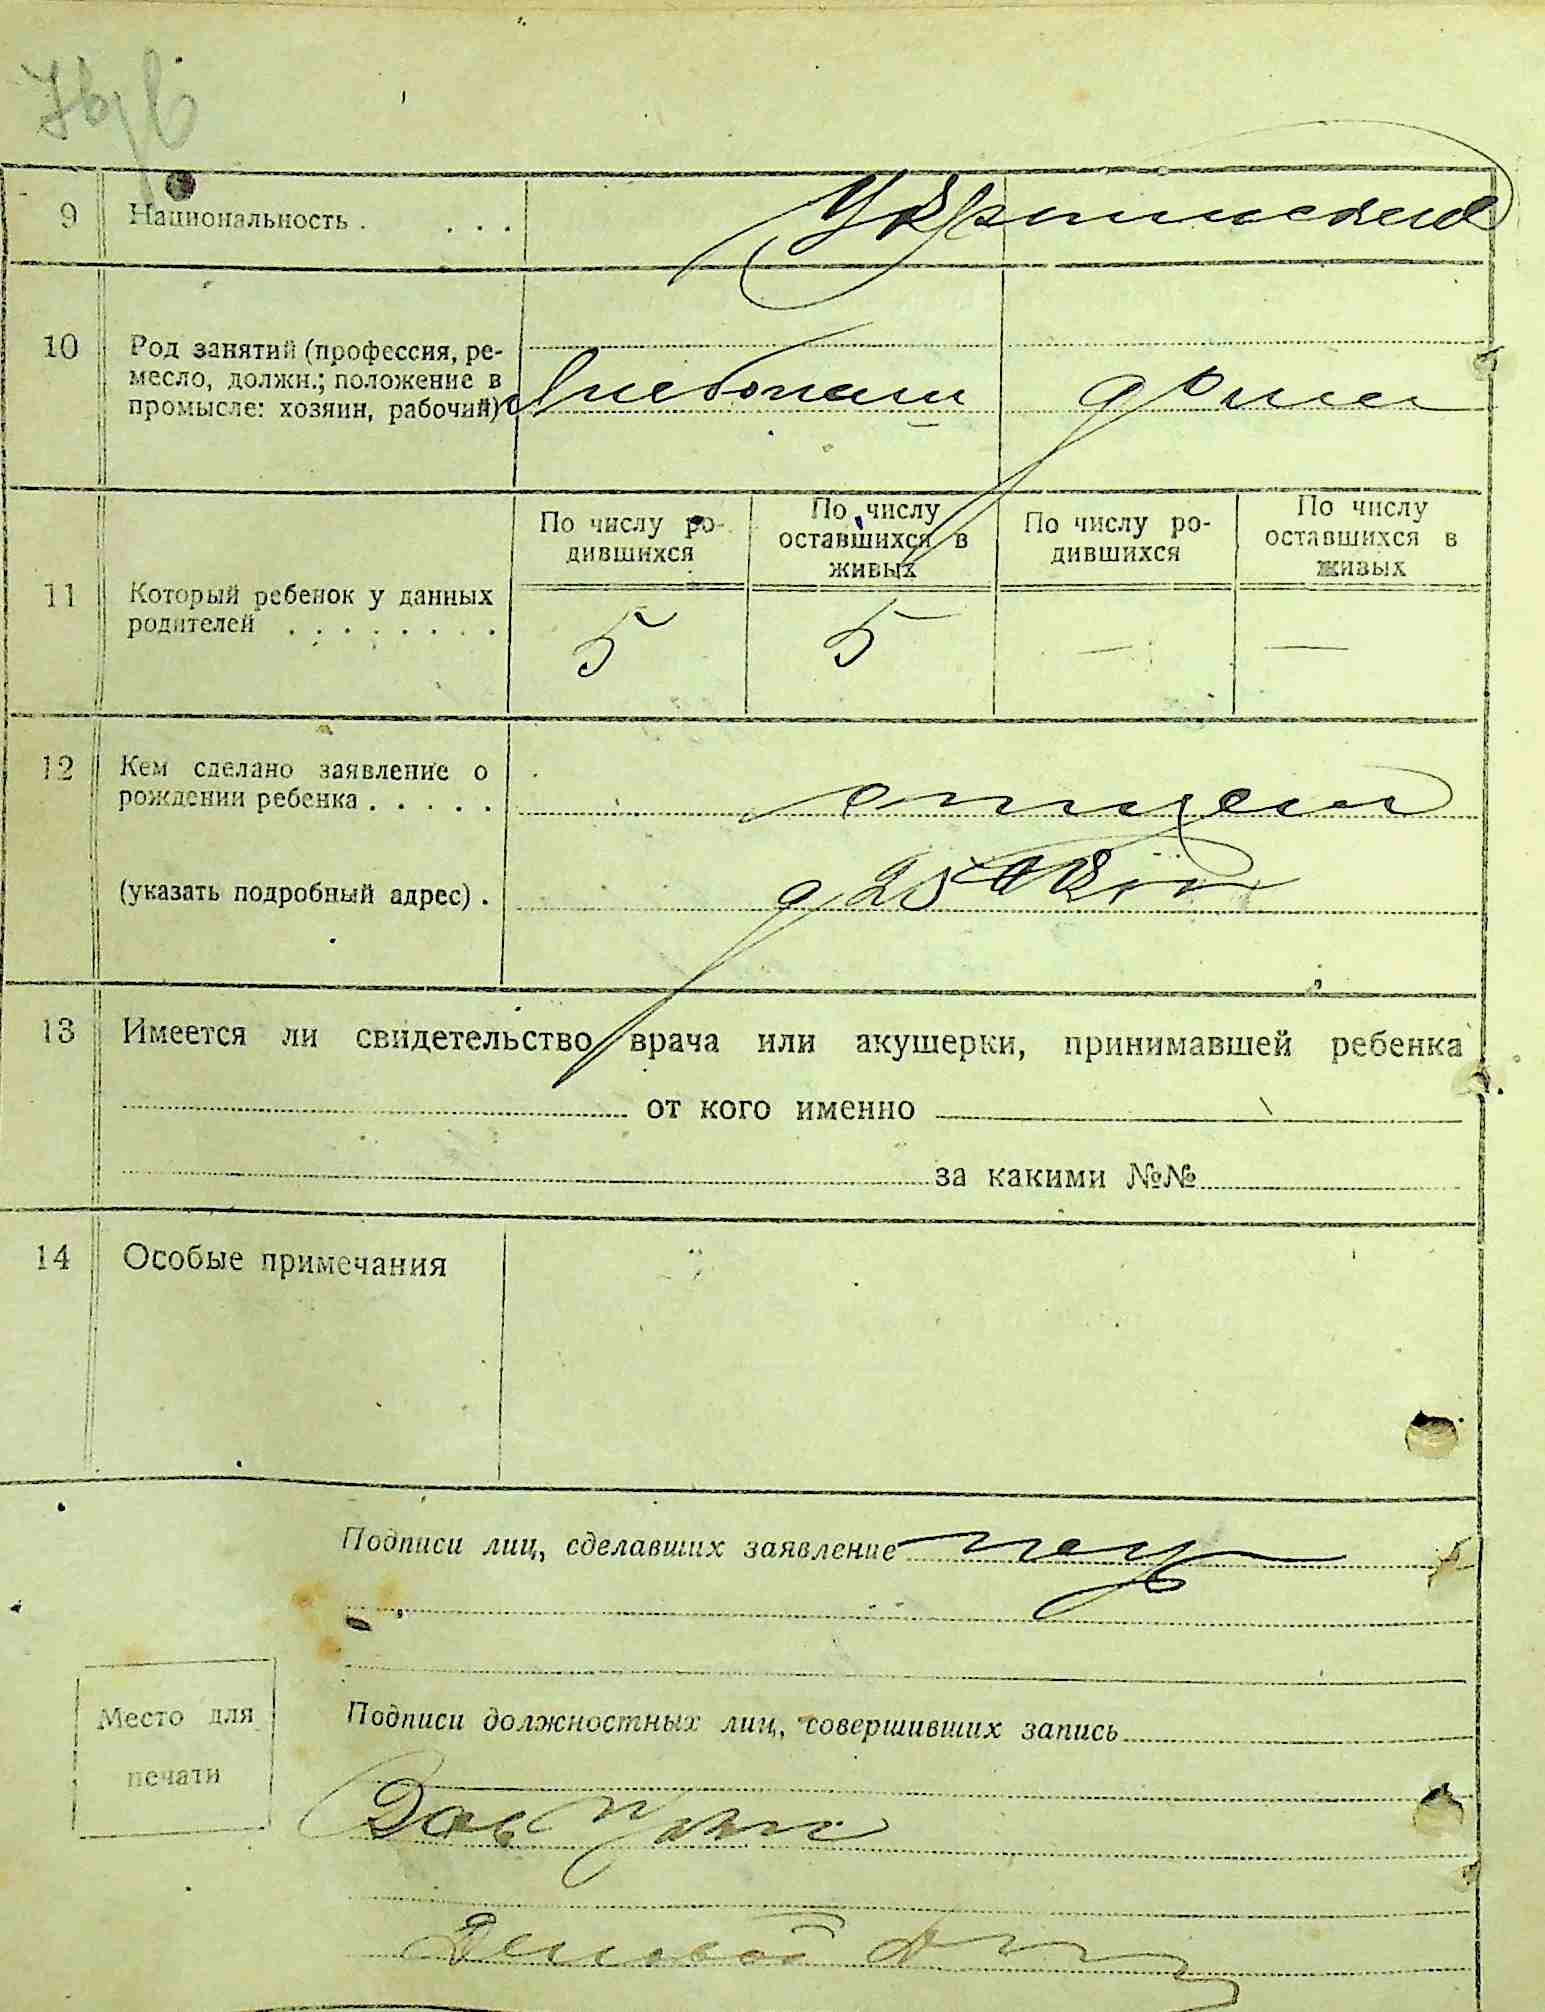 9 Национальность . . . . Украинская
10 Род занятий (профессия, ре-
месло, должн.; положение в
промысле: хозяин, рабочий) хлебопаш дома
По числу ро-
дившихся
По числу
оставшихся в
живых
По числу ро-
дившихся
По числу
оставшихся в
живых
11 Который ребенок у данных
родителей . . . . . . . .
5 5 — —
12 Кем сделано заявление о
рождении ребенка . . . . . отцем
(указать подробный адрес) .
13 Имеется ли свидетельство врача или акушерки, принимавшей ребенка
от кого именно
за какими №№
14 Особые примечания
Подписи лиц, сделавших заявление
Место для
печати
Подписи должностных лиц, совершивших запись